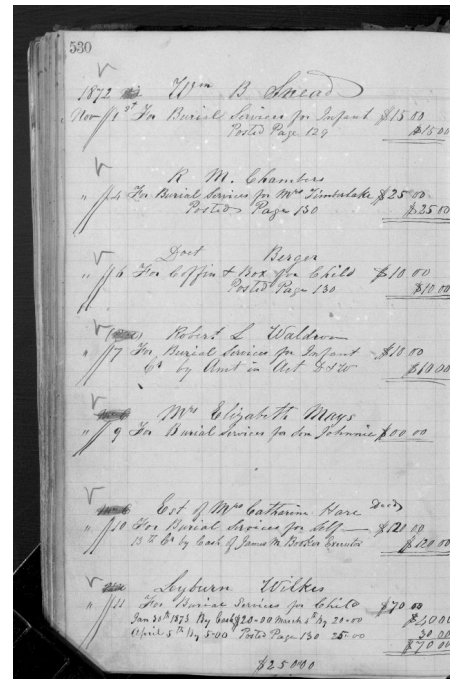 530
1872 Wm B Snead
Nov 1st For Burial Services for Infant $15.00
Posted Page 129 $15.00
R. M. Chambers
" 4 For Burial Services for Mrs Timberlake $25.00
Posted Page 130 $25.00
Doct Berger
" 6 For Coffin & Box for Child $10.00
Posted Page 130 $10.00
Robert L Waldron
" 7 For Burial Services for Infant $10.00
Cr by Amt in Act D&W $10.00
Mrs Elizabeth Mays
" 9 For Burial Services for Son Johnnie $00.00
Est of Mrs Catharine Hare Decd
" 10 For Burial Services for Self $120.00
13th Cr by Cash of James M. Booker Executor $120.00
Leyburn Wilkes
" 11 For Burial Services for Child $70.00
Jan 30th 1873 By Cash $20.00 March 8th By 20.00 $40.00
April 5th By 5.00 Posted Page 130 25.00 30.00
$70.00
$250.00